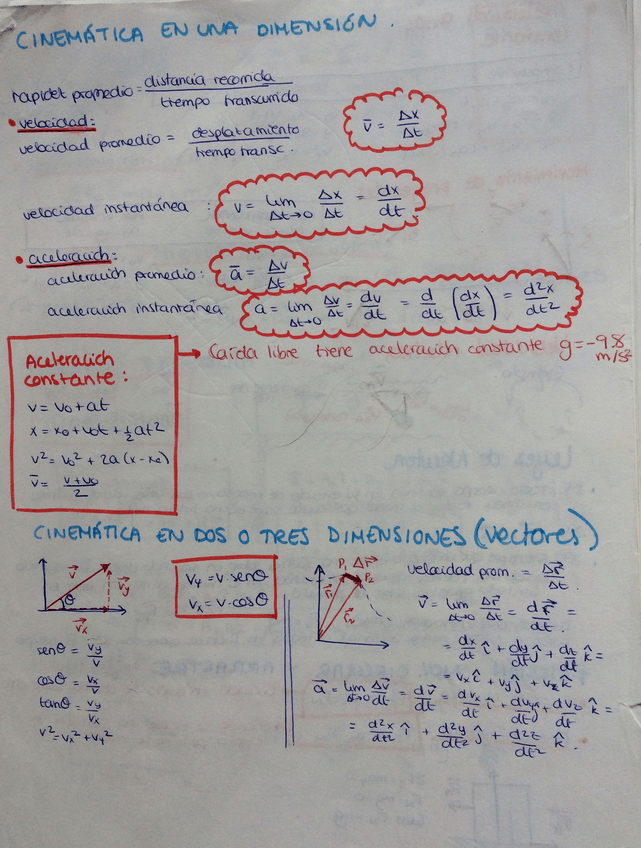 CINEMÁTICA EN UNA DIMENSIÓN.
rapidez promedio = distancia recorrida / tiempo transcurrido
• velocidad:
velocidad promedio = desplazamiento / tiempo transc.
v̄ = Δx/Δt
velocidad instantánea : v = lim Δt→0 Δx/Δt = dx/dt
• aceleración:
aceleración promedio: ā = Δv/Δt
aceleración instantánea a = lim Δt→0 Δv/Δt = dv/dt = d/dt (dx/dt) = d²x/dt²
Aceleración constante:
→ Caída libre tiene aceleración constante g = -9.8 m/s²
v = v₀ + at
x = x₀ + v₀t + ½at²
v² = v₀² + 2a(x - x₀)
v̄ = (v + v₀)/2
CINEMÁTICA EN DOS O TRES DIMENSIONES (vectores)
v⃗ v⃗y θ v⃗x
senθ = vy/v
cosθ = vx/v
tanθ = vy/vx
v² = vx² + vy²
vy = v·senθ
vx = v·cosθ
P₁ Δr⃗ P₂ r⃗₁ r⃗₂
velocidad prom. = Δr⃗/Δt
v⃗ = lim Δt→0 Δr⃗/Δt = dr⃗/dt =
= dx/dt î + dy/dt ĵ + dz/dt k̂ =
= vx î + vy ĵ + vz k̂
a⃗ = lim Δt→0 Δv⃗/Δt = dv⃗/dt = dvx/dt î + dvy/dt ĵ + dvz/dt k̂ =
= d²x/dt² î + d²y/dt² ĵ + d²z/dt² k̂.